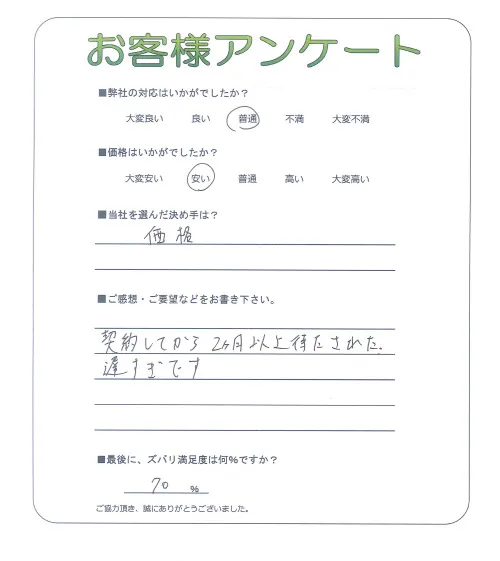 お客様アンケート
■弊社の対応はいかがでしたか？
大変良い 良い 普通 不満 大変不満
■価格はいかがでしたか？
大変安い 安い 普通 高い 大変高い
■当社を選んだ決め手は？
価格
■ご感想・ご要望などをお書き下さい。
契約してから 2ヶ月以上待たされた.
遅すぎです
■最後に、ズバリ満足度は何%ですか？
70 %
ご協力頂き、誠にありがとうございました。